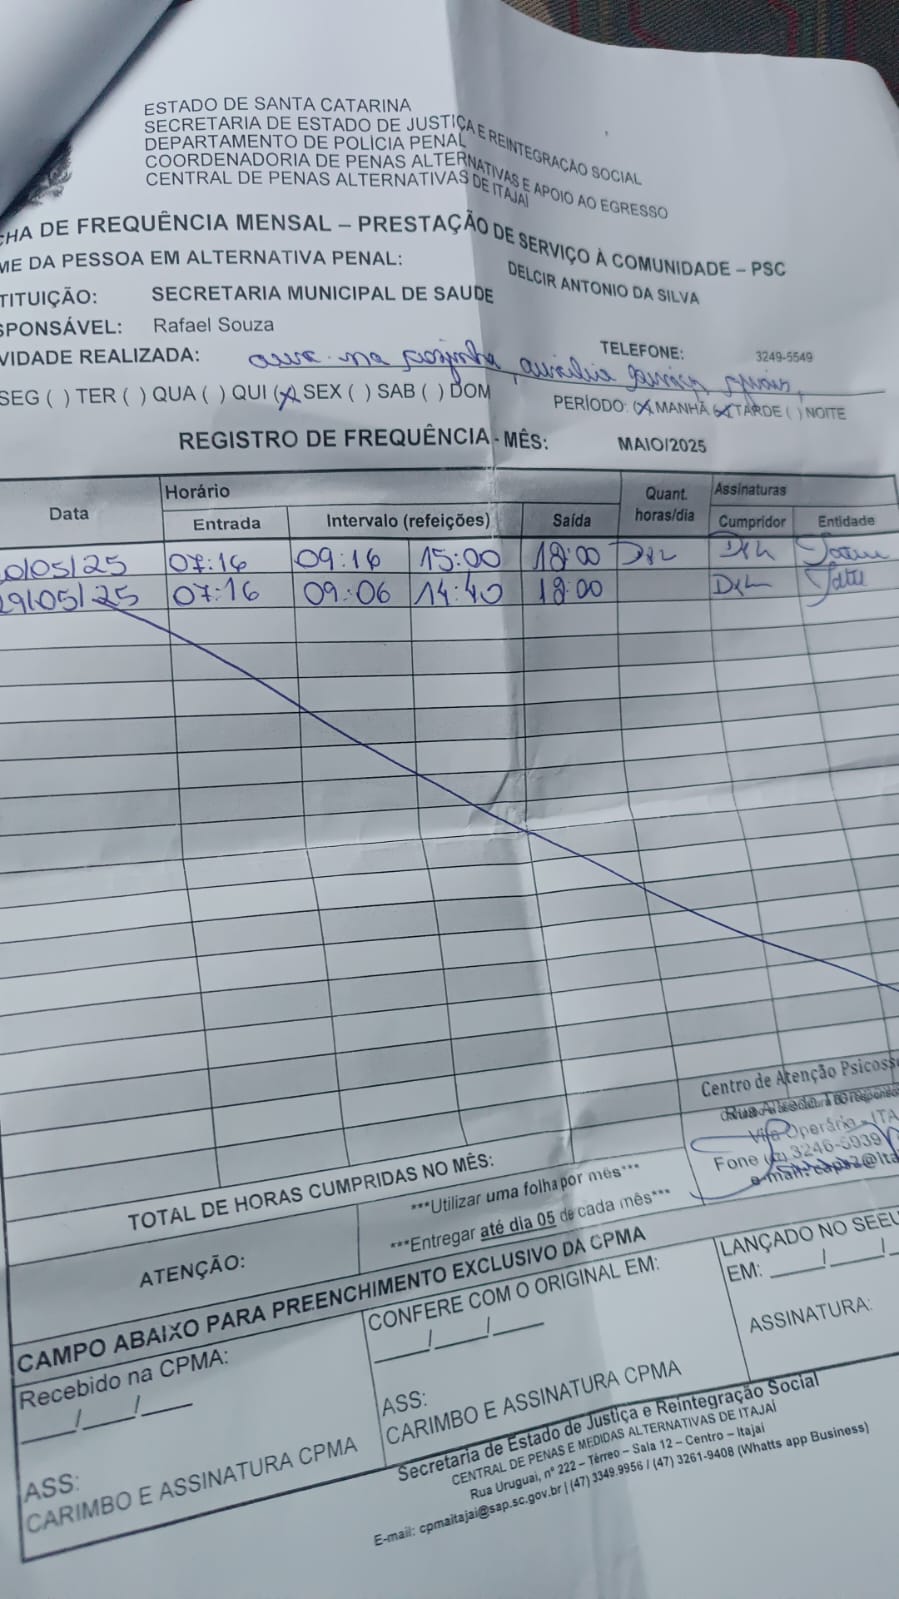 ESTADO DE SANTA CATARINA
SECRETARIA DE ESTADO DE JUSTIÇA E REINTEGRAÇÃO SOCIAL
DEPARTAMENTO DE POLÍCIA PENAL
COORDENADORIA DE PENAS ALTERNATIVAS E APOIO AO EGRESSO
CENTRAL DE PENAS ALTERNATIVAS DE ITAJAÍ
HA DE FREQUÊNCIA MENSAL – PRESTAÇÃO DE SERVIÇO À COMUNIDADE – PSC
ME DA PESSOA EM ALTERNATIVA PENAL: DELCIR ANTONIO DA SILVA
TITUIÇÃO: SECRETARIA MUNICIPAL DE SAUDE
SPONSÁVEL: Rafael Souza TELEFONE: 3249-5549
VIDADE REALIZADA: na cozinha, auxilia
SEG ( ) TER ( ) QUA ( ) QUI (x) SEX ( ) SAB ( ) DOM PERÍODO: (x) MANHÃ (x) TARDE ( ) NOITE
REGISTRO DE FREQUÊNCIA - MÊS: MAIO/2025
Data Horário Quant. horas/dia Assinaturas
Entrada Intervalo (refeições) Saída Cumpridor Entidade
0/05/25 07:16 09:16 15:00 18:00
29/05/25 07:16 09:06 14:40 18:00
Centro de Atenção Psicoss
Vila Operário - ITA
Fone 3246-5939
e-mail: caps2@ita
TOTAL DE HORAS CUMPRIDAS NO MÊS:
ATENÇÃO:
***Utilizar uma folha por mês***
***Entregar até dia 05 de cada mês***
CAMPO ABAIXO PARA PREENCHIMENTO EXCLUSIVO DA CPMA
Recebido na CPMA:
___/___/___
ASS:
CARIMBO E ASSINATURA CPMA
CONFERE COM O ORIGINAL EM:
___/___/___
ASS:
CARIMBO E ASSINATURA CPMA
LANÇADO NO SEEU
EM: ___/___/_
ASSINATURA:
Secretaria de Estado de Justiça e Reintegração Social
CENTRAL DE PENAS E MEDIDAS ALTERNATIVAS DE ITAJAÍ
Rua Uruguai, nº 222 – Térreo – Sala 12 – Centro – Itajaí
E-mail: cpmaitajai@sap.sc.gov.br | (47) 3349.9956 / (47) 3261-9408 (Whatts app Business)